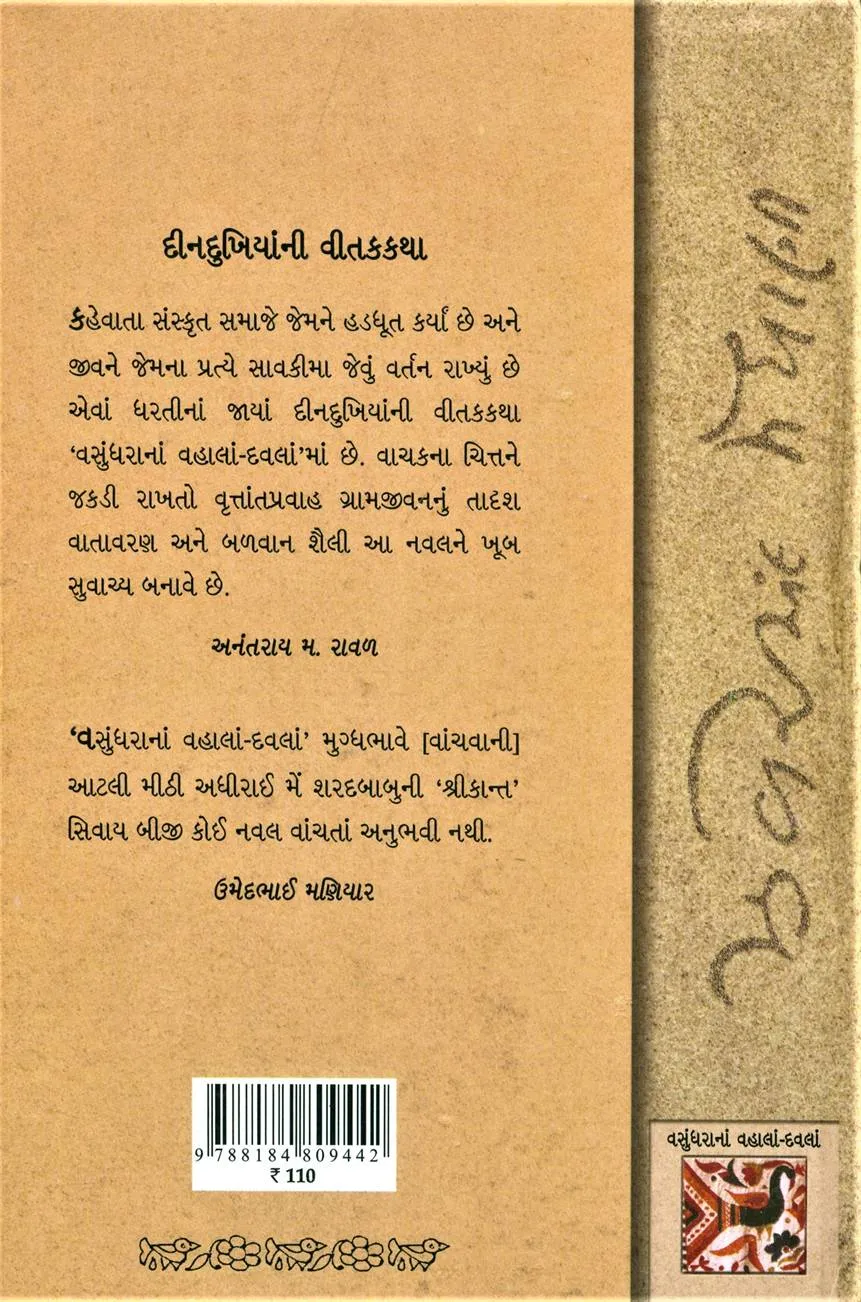 દીનદુખિયાંની વીતકકથા
કહેવાતા સંસ્કૃત સમાજે જેમને હડધૂત કર્યાં છે અને
જીવને જેમના પ્રત્યે સાવકીમા જેવું વર્તન રાખ્યું છે
એવાં ધરતીનાં જાયાં દીનદુખિયાંની વીતકકથા
‘વસુંધરાનાં વહાલાં-દવલાં’માં છે. વાચકના ચિત્તને
જકડી રાખતો વૃત્તાંતપ્રવાહ ગ્રામજીવનનું તાદશ
વાતાવરણ અને બળવાન શૈલી આ નવલને ખૂબ
સુવાચ્ય બનાવે છે.
અનંતરાય મ. રાવળ
‘વસુંધરાનાં વહાલાં-દવલાં’ મુગ્ધભાવે [વાંચવાની]
આટલી મીઠી અધીરાઈ મેં શરદબાબુની ‘શ્રીકાન્ત’
સિવાય બીજી કોઈ નવલ વાંચતાં અનુભવી નથી.
ઉમેદભાઈ મણિયાર
9 788184 809442
₹ 110
ઝવેરચંદ મેઘાણી
વસુંધરાનાં વહાલાં-દવલાં